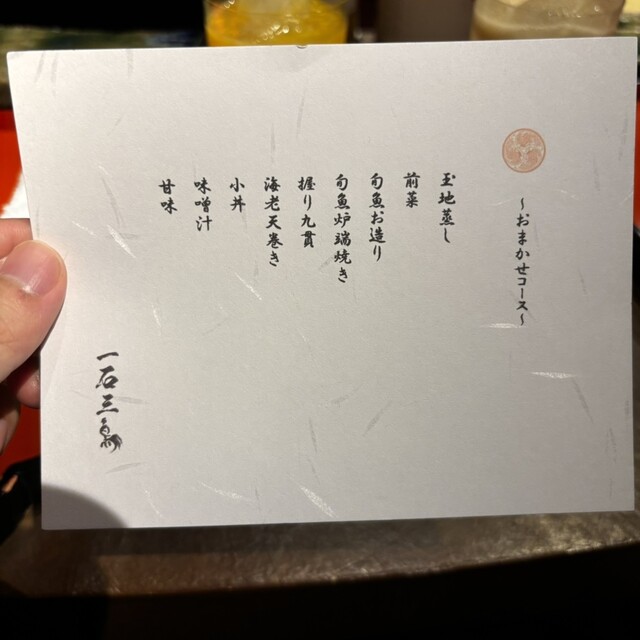 〜おまかせコース〜
玉地蒸し
前菜
旬魚お造り
旬魚炉端焼き
握り九貫
海老天巻き
小丼
味噌汁
甘味
一石三鳥